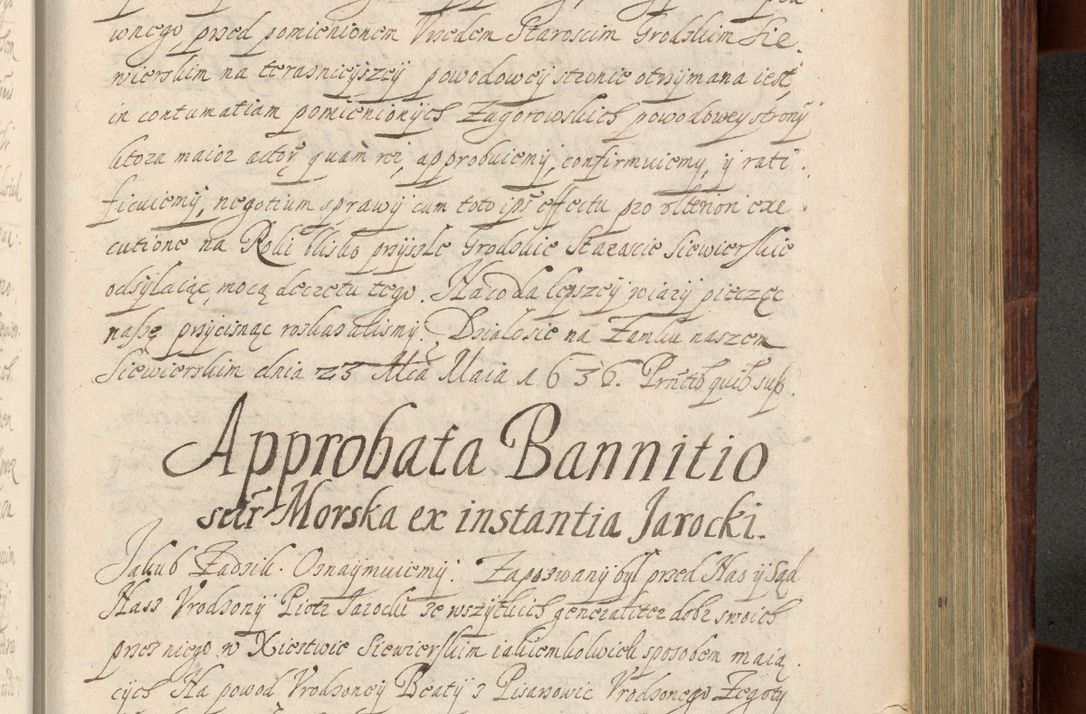 wnego przed pomienionem Vrzedem Staroscim Grodskim Sie.
wierskim na terasnieyszey powodowey stronie otrzymana iest,
in contumatiam pomienionych Zagorowskich powodowey strony
litoza maior actoꝝ quam rei, approbuiemy, confirmuiemy, y rati
ficuiemy, negotium sprawy cum toto ipsi effectu pro vlterion exe
cutione na Roki blisko przyszłe Grodskie Staroscie Siewierskie
odsyłaiąc, mocą decretu tego. Naco dla lepszey wiary pieczęc
naszę przycisnąc roskazalismy. Działosie na Zamku naszem
Siewierskim dnia 23 Mca Maia 1636. Prntib quib sup.
Approbata Bannitio
sup Morska ex instantia Jarocki.
Jakub Zadzik. Oznaymuiemy. Zapozwany był przed Nas y Sąd
Nasz Vrodzony Piotr Jarocki ze wszytkich generaliter dobr swoich
przez niego w Xiestwie Siewierskim iakiemkolwiek sposobem maią.
cych Na powod Vrodzoney Beaty z Pisarzowic Vrodzonego Zegoty